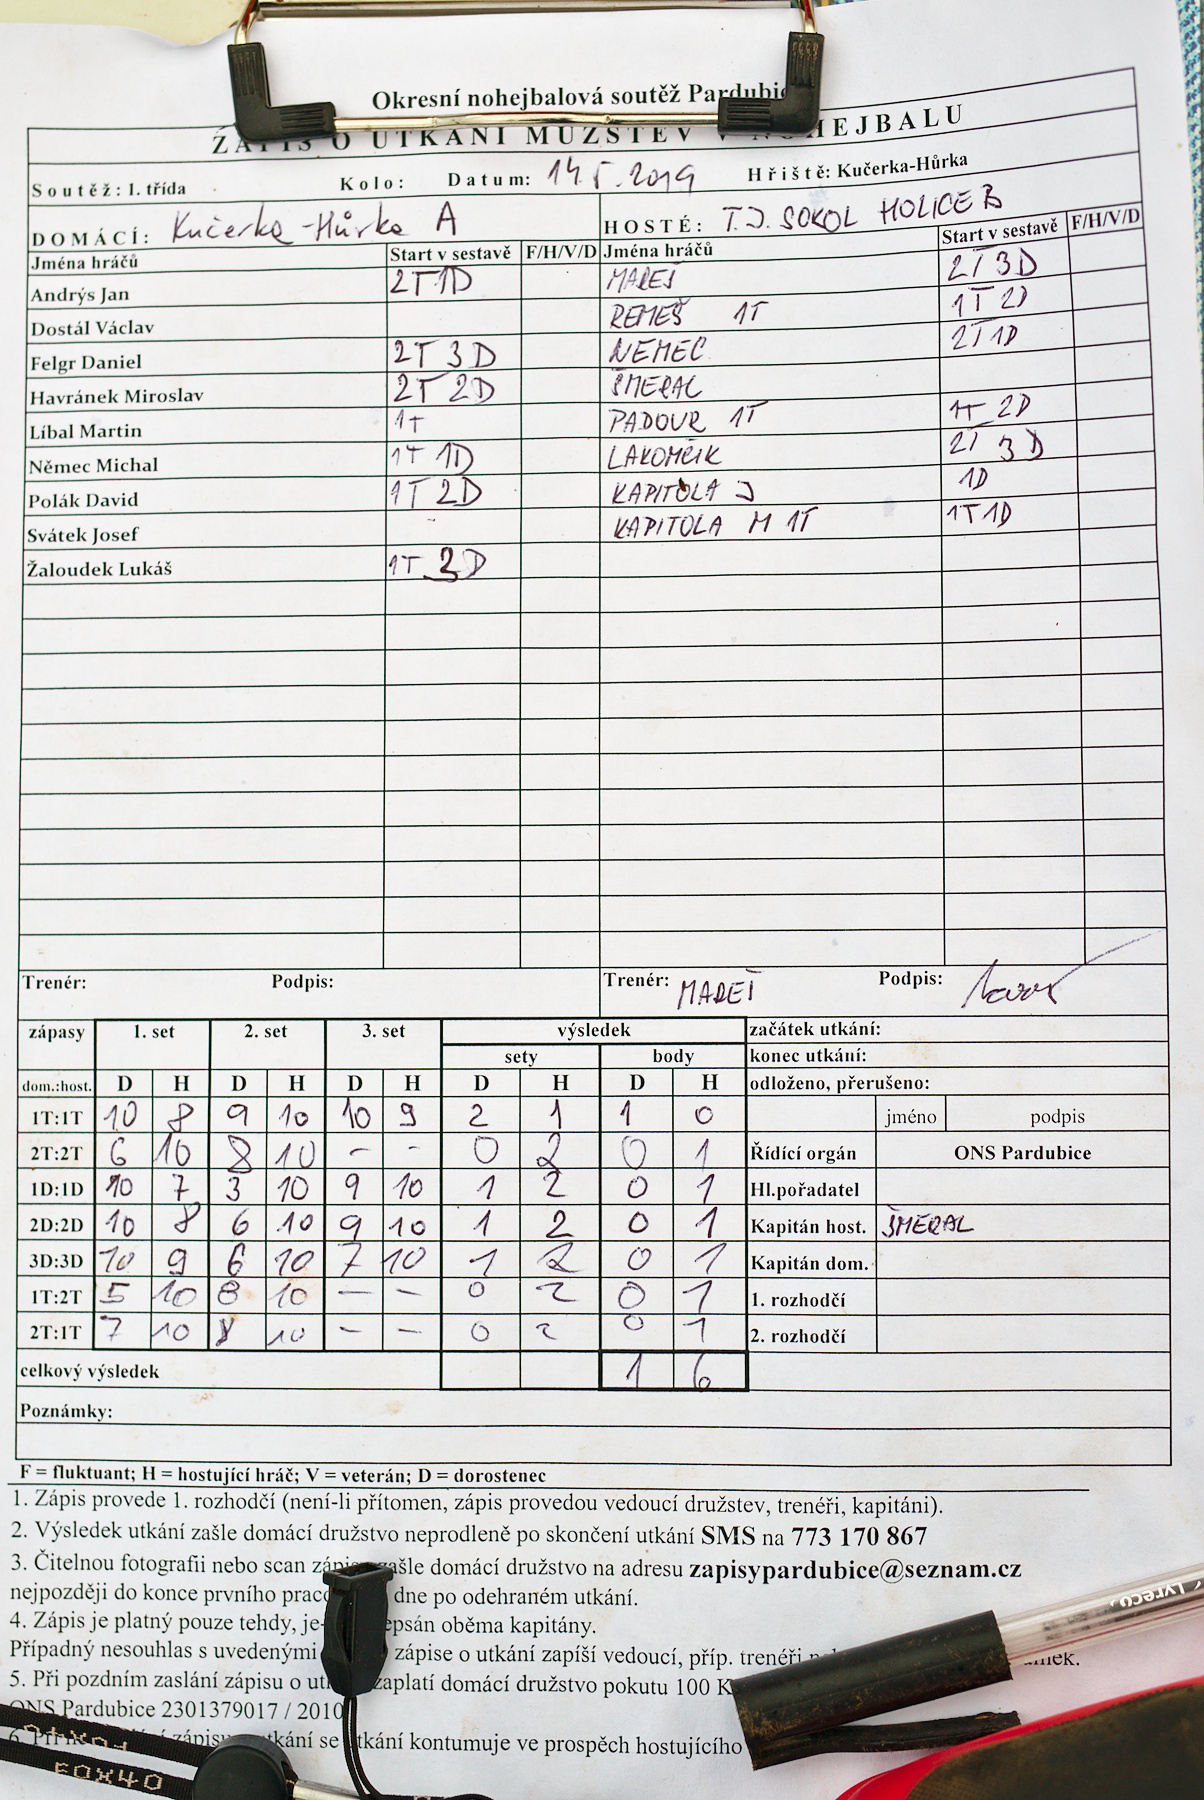 Okresní nohejbalová soutěž
ZÁPIS O UTKÁNÍ MUŽSTEV V NOHEJBALU
Soutěž: 1. třída Kolo: Datum: 14.5.2019 Hřiště: Kučerka-Hůrka
DOMÁCÍ: Kučerka-Hůrka A HOSTÉ: T.J. SOKOL HOLICE B
Jména hráčů Start v sestavě F/H/V/D Jména hráčů Start v sestavě F/H/V/D
Andrýs Jan 2T 1D MAREŠ 2T 3D
Dostál Václav REMEŠ 1T 1T 2D
Felgr Daniel 2T 3D NEMEC 2T 1D
Havránek Miroslav 2T 2D ŠMERAL
Líbal Martin 1T PADOUR 1T 1T 2D
Němec Michal 1T 1D LAKOMČÍK 2T 3D
Polák David 1T 2D KAPITOLA J 1D
Svátek Josef KAPITOLA M 1T 1T 1D
Žaloudek Lukáš 1T 3D
Trenér: Podpis: Trenér: MAREŠ Podpis:
zápasy 1. set 2. set 3. set výsledek začátek utkání:
sety body konec utkání:
dom.:host. D H D H D H D H D H odloženo, přerušeno:
1T:1T 10 8 9 10 10 9 2 1 1 0 jméno podpis
2T:2T 6 10 8 10 - - 0 2 0 1 Řídící orgán ONS Pardubice
1D:1D 10 7 3 10 9 10 1 2 0 1 Hl.pořadatel
2D:2D 10 8 6 10 9 10 1 2 0 1 Kapitán host. ŠMERAL
3D:3D 10 9 6 10 7 10 1 2 0 1 Kapitán dom.
1T:2T 5 10 8 10 - - 0 2 0 1 1. rozhodčí
2T:1T 7 10 8 10 - - 0 2 0 1 2. rozhodčí
celkový výsledek 1 6
Poznámky:
F = fluktuant; H = hostující hráč; V = veterán; D = dorostenec
1. Zápis provede 1. rozhodčí (není-li přítomen, zápis provedou vedoucí družstev, trenéři, kapitáni).
2. Výsledek utkání zašle domácí družstvo neprodleně po skončení utkání SMS na 773 170 867
3. Čitelnou fotografii nebo scan zápisu zašle domácí družstvo na adresu zapisypardubice@seznam.cz
nejpozději do konce prvního dne po odehraném utkání.
4. Zápis je platný pouze tehdy, oběma kapitány.
Případný nesouhlas s uvedenými zápise o utkání zapíší vedoucí, příp. trenéři
5. Při pozdním zaslání zápisu o zaplatí domácí družstvo pokutu 100
ONS Pardubice 2301379017 / 2010
utkání se utkání kontumuje ve prospěch hostujícího
Lyreco
60X40